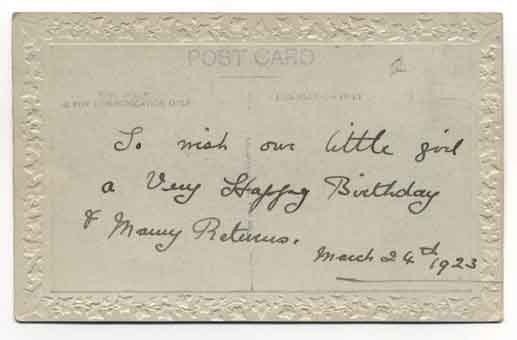 POST CARD
THIS SPACE
IS FOR COMMUNICATION ONLY
ADDRESS ONLY
To wish our little girl
a Very Happy Birthday
& Many Returns.
March 24th 1923